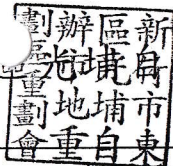 新竹市東
區光埔自
辦市地重
劃區重劃會